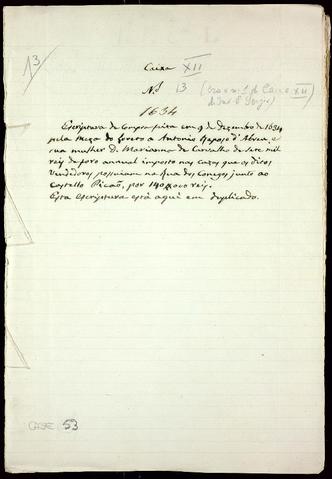 13
Caixa XII
N.º 13 (era o n.º 1 da Caixa XII)
1634
Escriptura de compra feita em 9 de Dezembro de 1634
pela Meza do Loreto a Antonio Raposo d'Abreu e
sua mulher D. Marianna de Carvalho de sete mil
reis de foro annual imposto nas cazas que os ditos
vendedores possuiam na Rua dos Conegos junto ao
Castello Picão, por 140$000 reis.
Esta escriptura está aqui em duplicado.
CASE 53